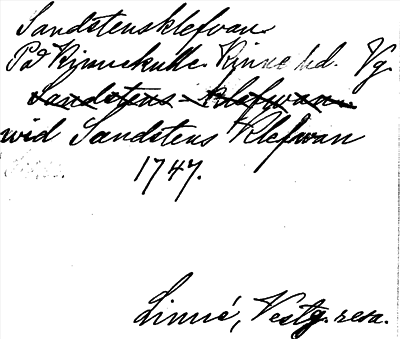 Sandstensklefvan.
På Kinnekulle. Kinne hd. Vg.
Sandstens-klefwan
wid Sandstens Klefwan
1747.
Linné, Vestg. resa.